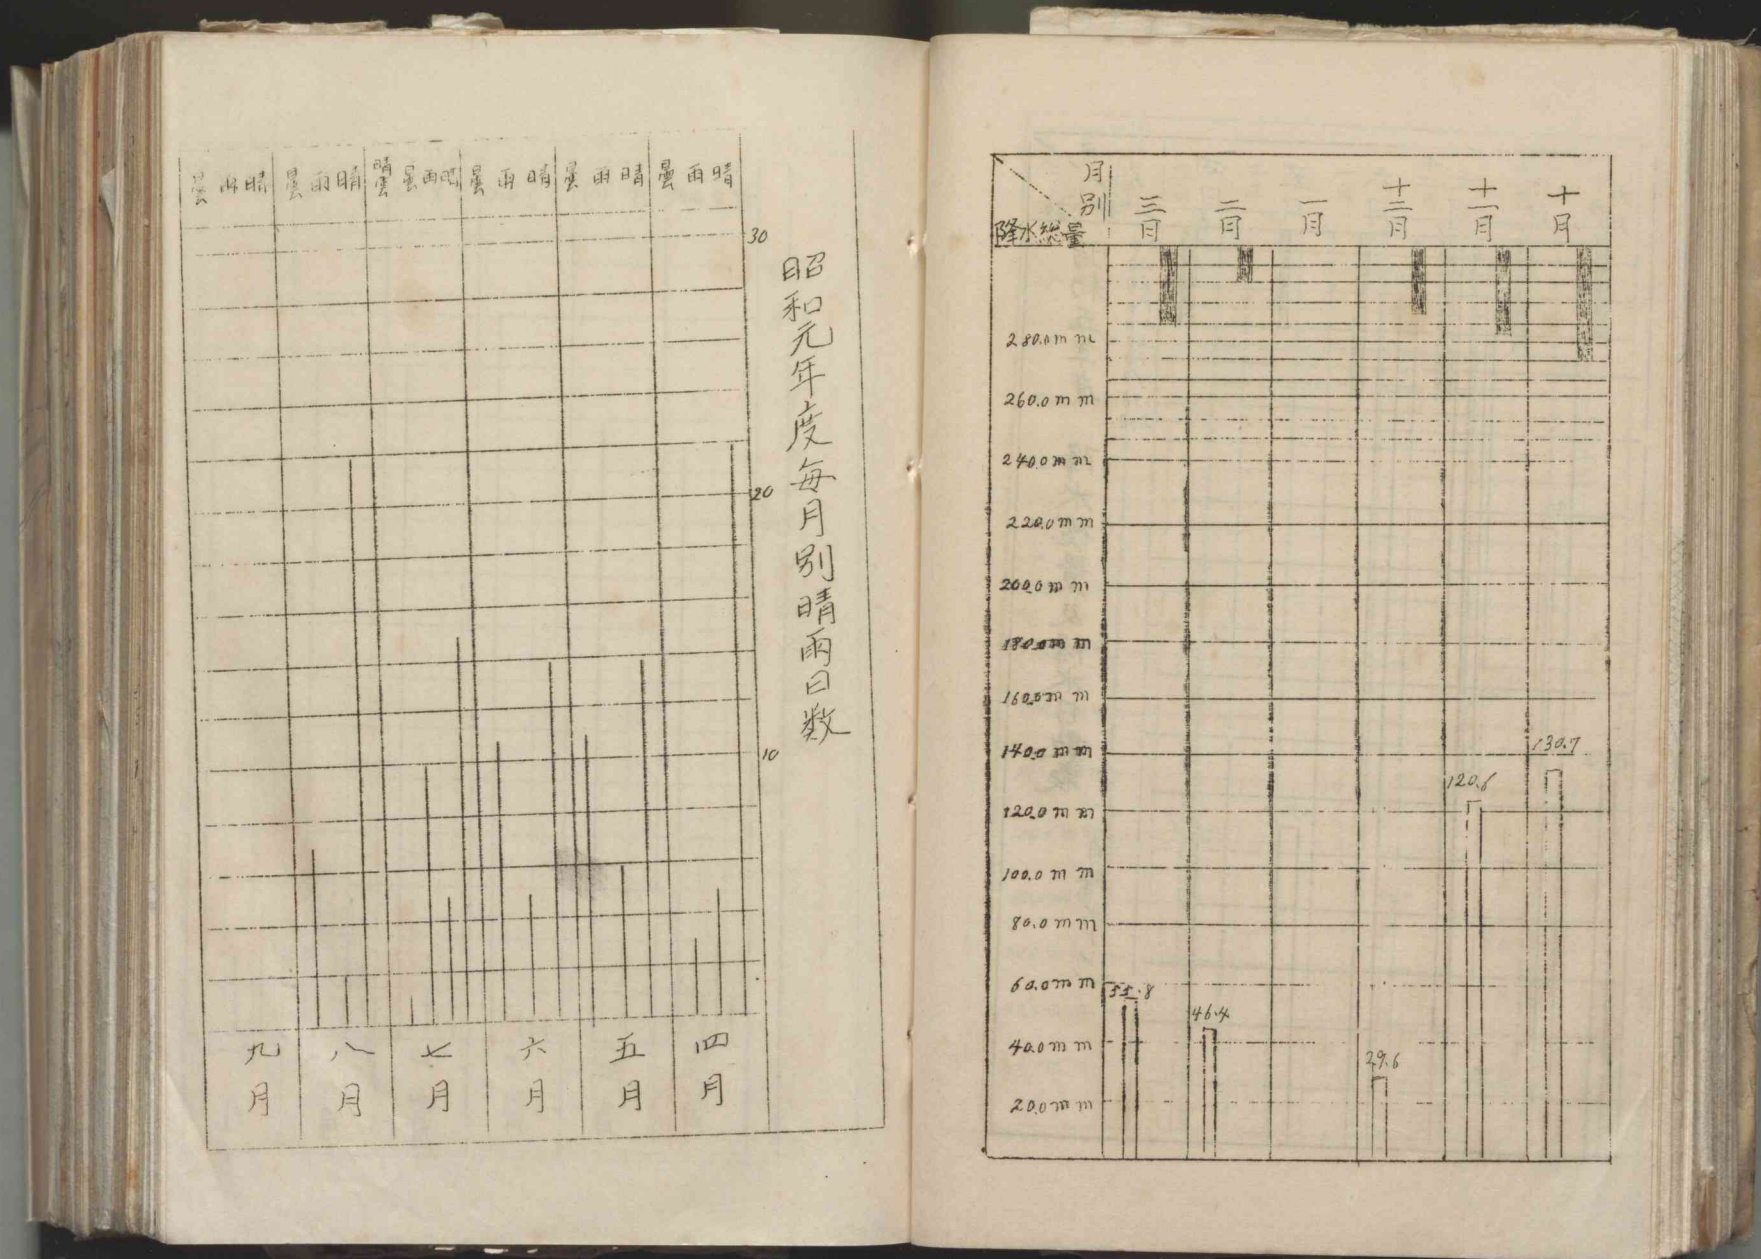 月別
降水総量
十月
十一月
十二月
一月
二月
三月
280.0mm
260.0mm
240.0mm
220.0mm
200.0mm
180.0mm
160.0mm
140.0mm
120.0mm
100.0mm
80.0mm
60.0mm
40.0mm
20.0mm
130.7
120.6
29.6
46.4
55.8
昭和元年度毎月別晴雨日数
30
20
10
晴 雨 曇
晴 雨 曇
晴 雨 曇
晴 雨 曇 晴曇
晴 雨 曇
晴 雨 曇
四月
五月
六月
七月
八月
九月